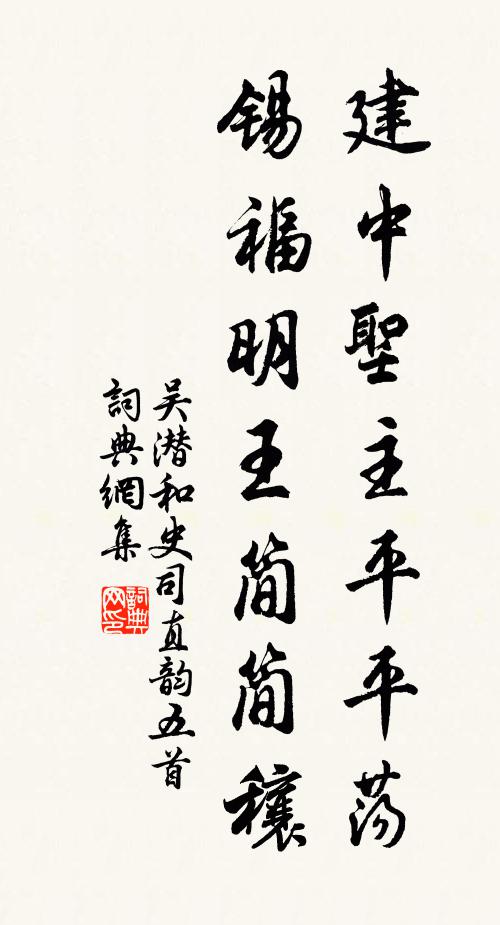 建中聖主平平荡
锡福明王简简穰
吴潜和史司直韵五首
詞典網集
詞典
网印